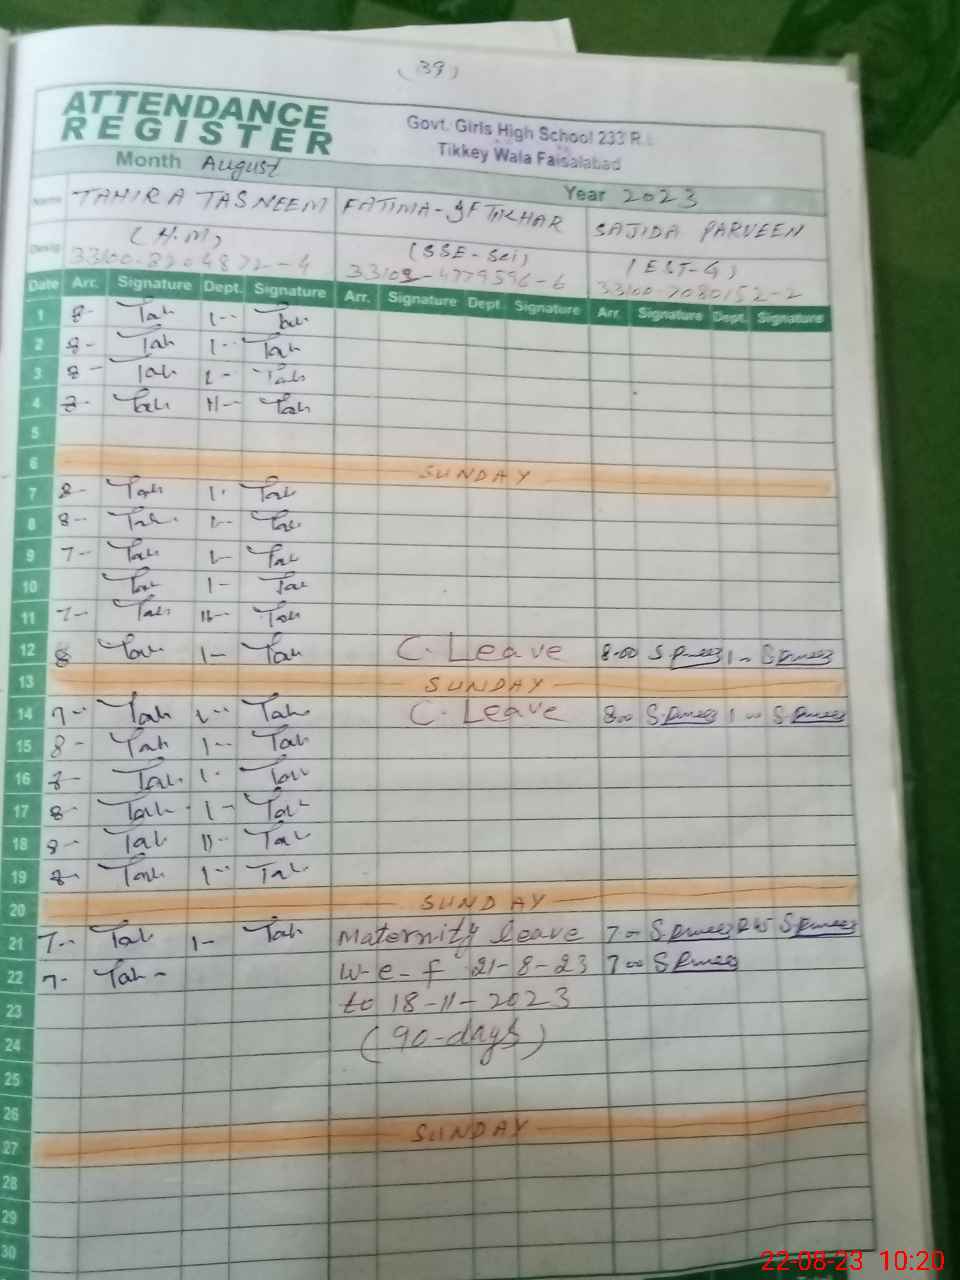 (39)
ATTENDANCE
REGISTER
Govt. Girls High School 233 R.B
Tikkey Wala Faisalabad
Month August
Year 2023
Name TAHIRA TASNEEM FATIMA-IFTIKHAR SAJIDA PARVEEN
Desig (H.M) (SSE-Sci) (EST-G)
Date Arr. Signature Dept. Signature Arr. Signature Dept. Signature Arr. Signature Dept. Signature
1 8- Tah 1-- Tah
2 8- Tah 1-- Tah
3 8- Tah 1-- Tah
4 8- Tah 11-- Tah
5
6 SUNDAY
7 8- Tah 1- Tah
8 8-- Tah 1-- Tah
9 7-- Tah 1- Tah
10 Tah 1- Tah
11 7-- Tah 11-- Tah
12 8 Tah 1- Tah C. Leave 8-00 1-
13 SUNDAY
14 7-- Tah 1-- Tah C. Leave 8-00 1-00
15 8- Tah 1-- Tah
16 8- Tah 1- Tah
17 8- Tah 1- Tah
18 8- Tah 11-- Tah
19 8- Tah 1-- Tah
20 SUNDAY
21 7-- Tah 1- Tah Maternity leave 7-00
22 7- Tah w-e-f 21-8-23 7-00
23 to 18-11-2023
24 (90-days)
25
26
27 SUNDAY
28
29
30
22-08-23 10:20